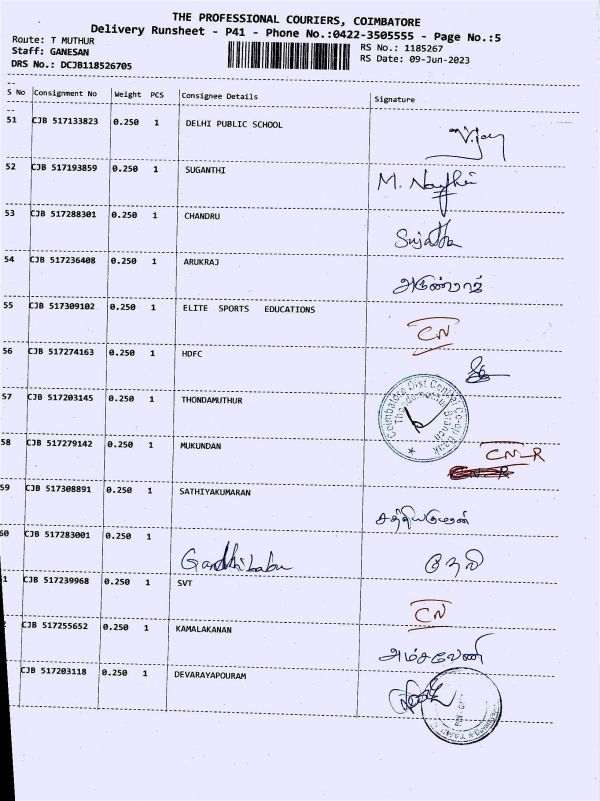 THE PROFESSIONAL COURIERS, COIMBATORE
Delivery Runsheet - P41 - Phone No.:0422-3505555 - Page No.:5
Route: T MUTHUR RS No.: 1185267
Staff: GANESAN RS Date: 09-Jun-2023
DRS No.: DCJB118526705
S No Consignment No Weight PCS Consignee Details Signature
51 CJB 517133823 0.250 1 DELHI PUBLIC SCHOOL
52 CJB 517193859 0.250 1 SUGANTHI M.
53 CJB 517288301 0.250 1 CHANDRU Sujatha
54 CJB 517236408 0.250 1 ARUKRAJ அருண்ராஜ்
55 CJB 517309102 0.250 1 ELITE SPORTS EDUCATIONS CN
56 CJB 517274163 0.250 1 HDFC
57 CJB 517203145 0.250 1 THONDAMUTHUR Coimbatore Dist Central Co-op Bank Thondamuthur Branch
58 CJB 517279142 0.250 1 MUKUNDAN CN-R
CN-R
59 CJB 517308891 0.250 1 SATHIYAKUMARAN சத்தியகுமரன்
60 CJB 517283001 0.250 1 Gandhibabu
1 CJB 517239968 0.250 1 SVT CN
2 CJB 517255652 0.250 1 KAMALAKANAN அம்சவேணி
CJB 517203118 0.250 1 DEVARAYAPOURAM